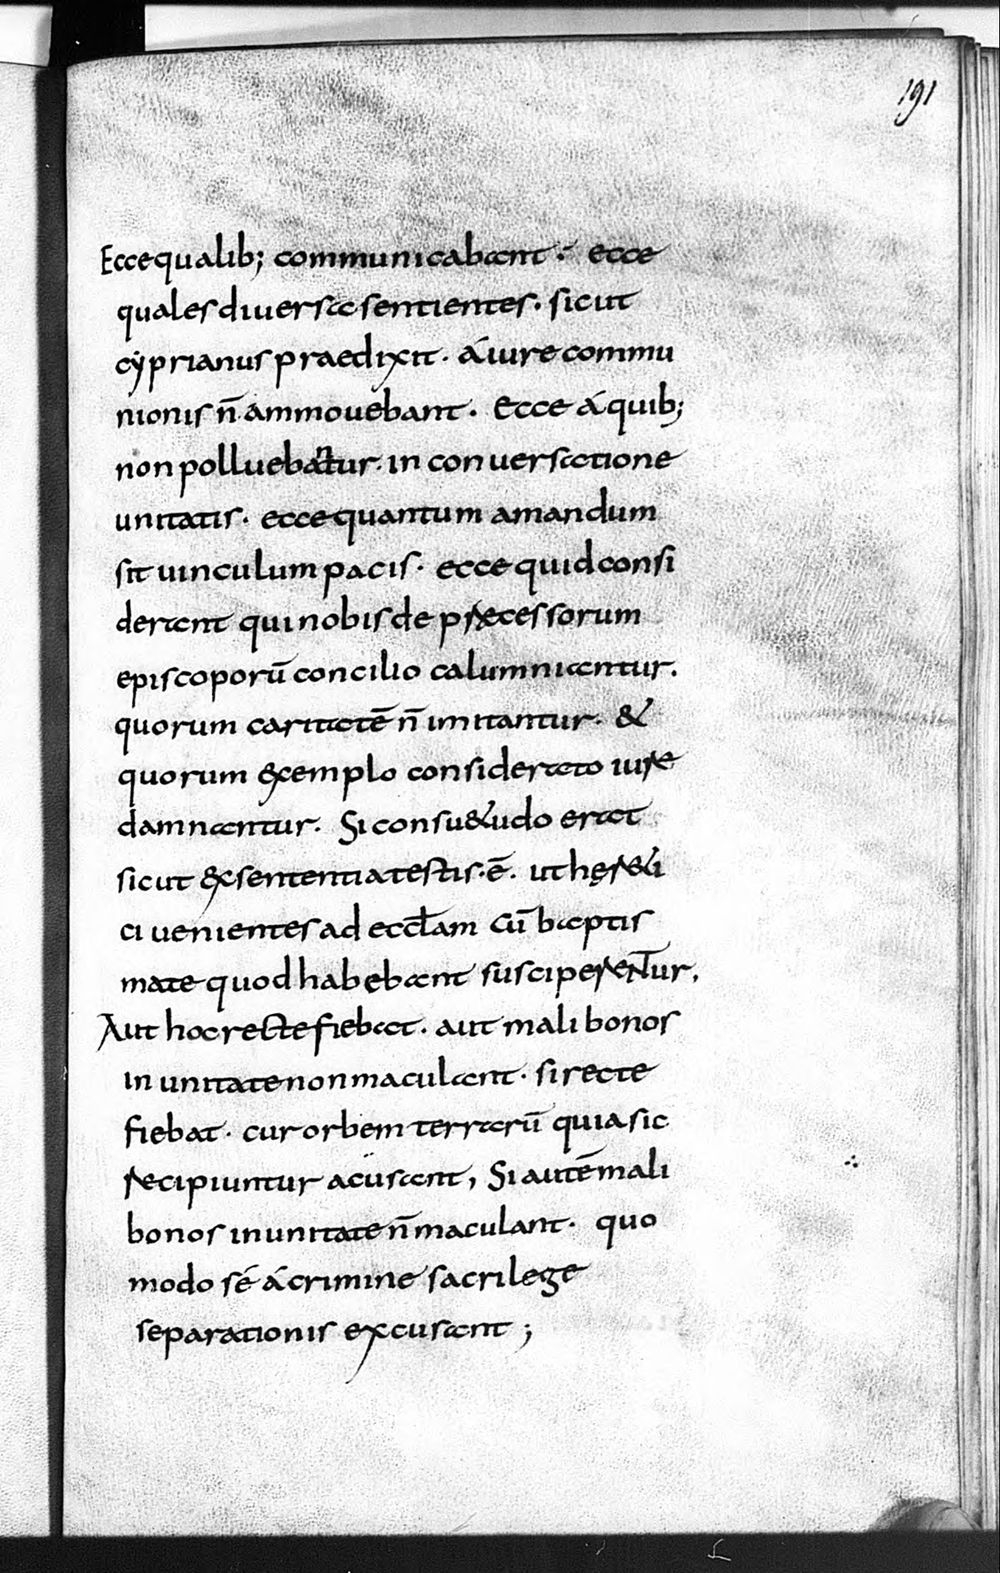 191
Ecce qualib; communicabant · ecce
quales diuersa sentientes · sicut
cyprianus praedixit · á iure commu
nionis n̄ ammouebant · Ecce á quib;
non polluebantur · in conuersatione
unitatis · ecce quantum amandum
sit uinculum pacis · ecce quid consi
derent qui nobis de praecessorum
episcoporū concilio calumniantur ·
quorum caritatē n̄ imitantur · &
quorum exemplo considerato iure
damnantur · Si consu&udo erat
sicut ex sententia testis · ē · ut her&i
ci uenientes ad eccl̄am cū baptis
mate quod habebant susciperentur,
Aut hoc recte fiebat · aut mali bonos
in unitate non maculant · si recte
fiebat · cur orbem terrarū quia sic
recipiuntur acusant, Si autē mali
bonos in unitate n̄ maculant · quo
modo sé á crimine sacrilege
separationis excusant ;